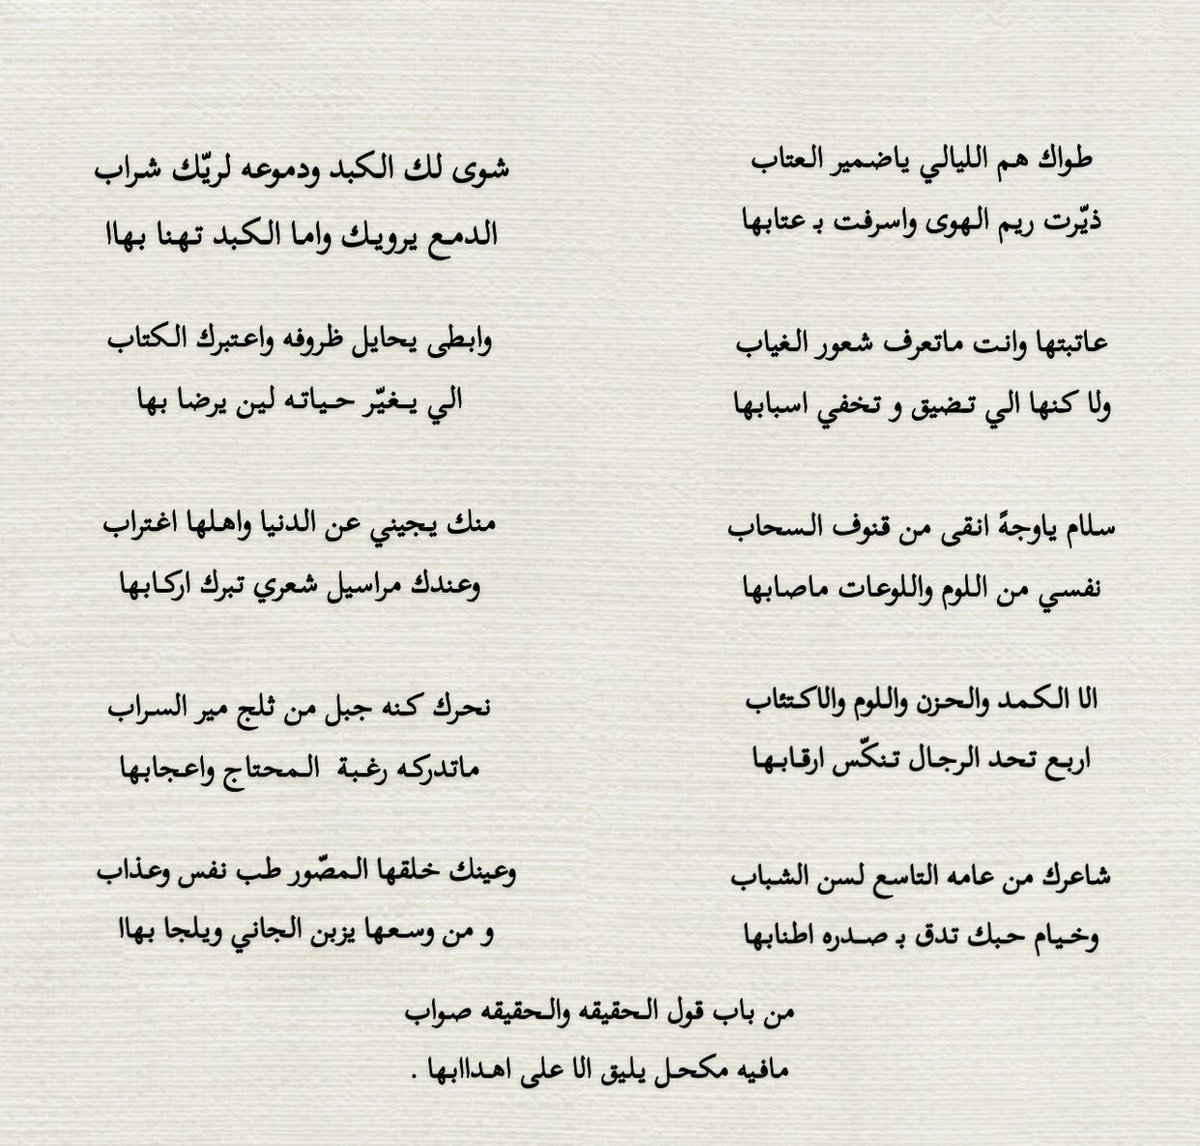 طواك هم الليالي ياضمير العتاب
ذيّرت ريم الهوى واسرفت بـ عتابها
عاتبتها وانت ماتعرف شعور الغياب
ولا كنها الي تضيق و تخفي اسبابها
سلام ياوجهً انقى من قنوف السحاب
نفسي من اللوم واللوعات ماصابها
الا الكمد والحزن واللوم والاكتئاب
اربع تحد الرجال تنكّس ارقابها
شاعرك من عامه التاسع لسن الشباب
وخيام حبك تدق بـ صدره اطنابها
شوى لك الكبد ودموعه لريّك شراب
الدمع يرويك واما الكبد تهنا بهاا
وابطى يحايل ظروفه واعتبرك الكتاب
الي يغيّر حياته لين يرضا بها
منك يجيني عن الدنيا واهلها اغتراب
وعندك مراسيل شعري تبرك اركابها
نحرك كنه جبل من ثلج مير السراب
ماتدركه رغبة المحتاج واعجابها
وعينك خلقها المصّور طب نفس وعذاب
و من وسعها يزبن الجاني ويلجا بهاا
من باب قول الحقيقه والحقيقه صواب
مافيه مكحل يليق الا على اهداابها .